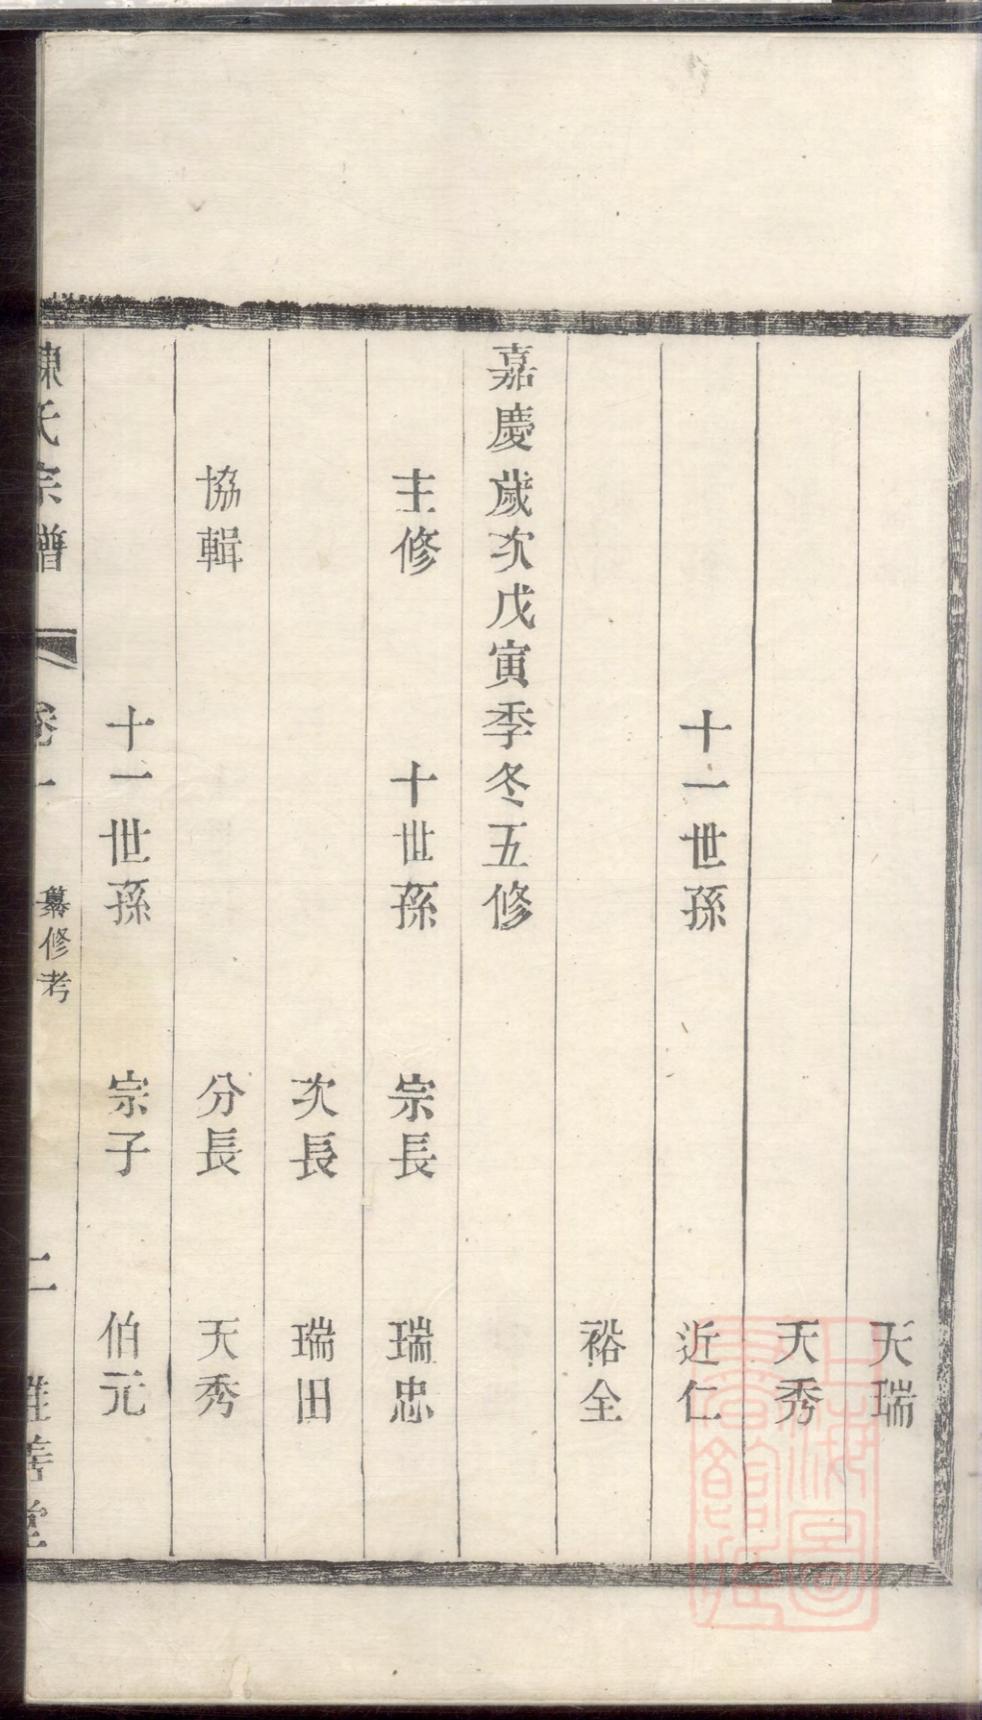 天瑞
天秀
十一世孫 近仁
裕全
嘉慶歲次戊寅季冬五修
主修 十世孫 宗長 瑞忠
次長 瑞田
協輯 分長 天秀
十一世孫 宗子 伯元
陳氏宗譜 卷一 纂修考 二 惟善堂
上海圖書館藏